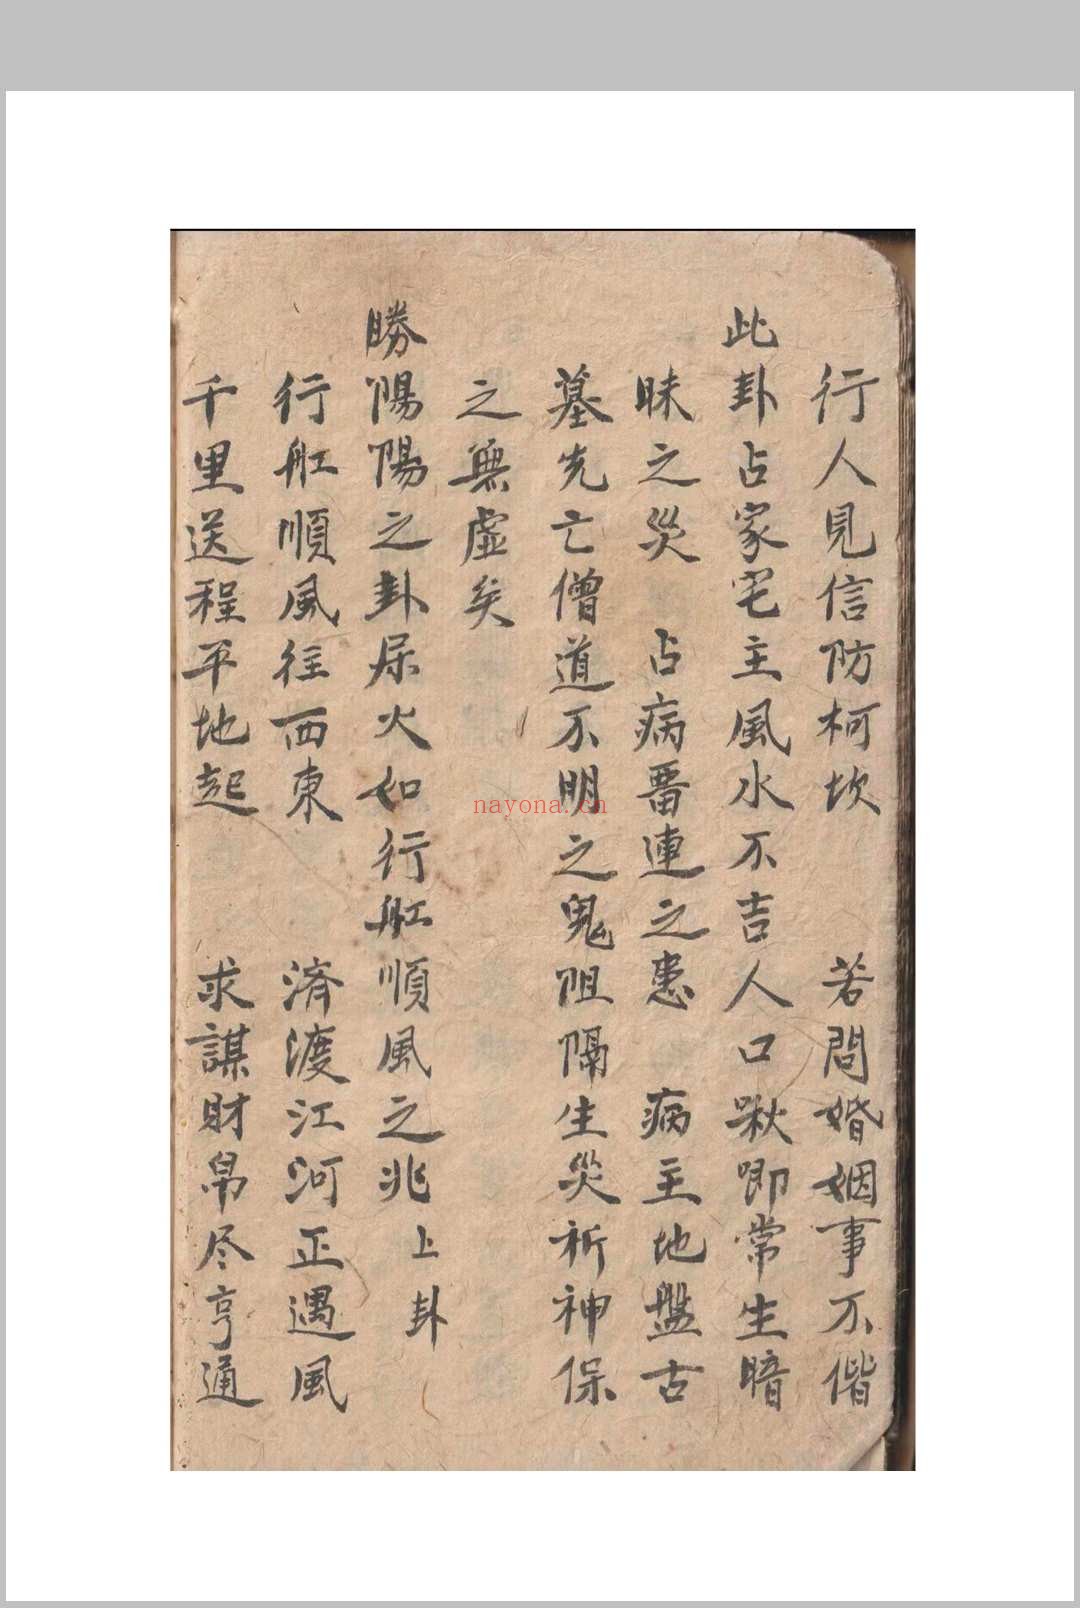 行人見信防柯坎 若問婚姻事不偕
此卦占家宅主風水不吉人口啾唧常生暗
昧之災 占病畨連之患 病主地盤古
墓先亡僧道不明之鬼阻隔生災祈神保
之無虛矣
勝陽陽之卦屎火如行舡順風之兆上卦
行舡順風往西東 済渡江河正遇風
千里送程平地起 求謀財帛尽亨通
nayona.cn